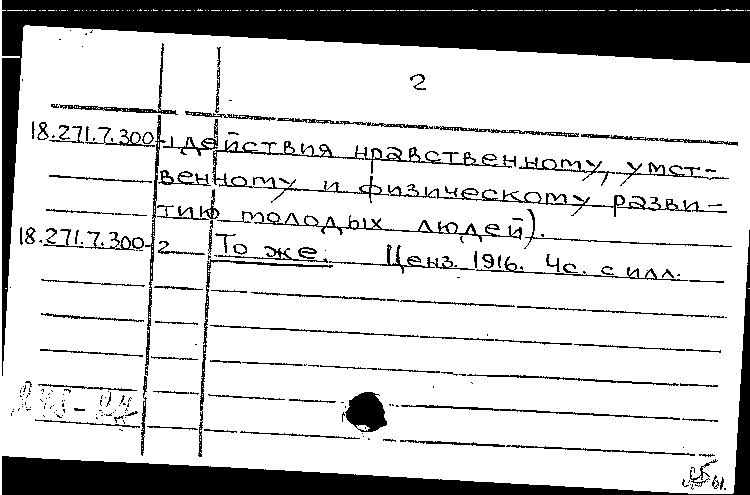 2
18.271.7.300-1 действия нравственному, умст-
венному и физическому разви-
тию молодых людей).
18.271.7.300-2 То же. Ценз. 1916. 4с. с илл.